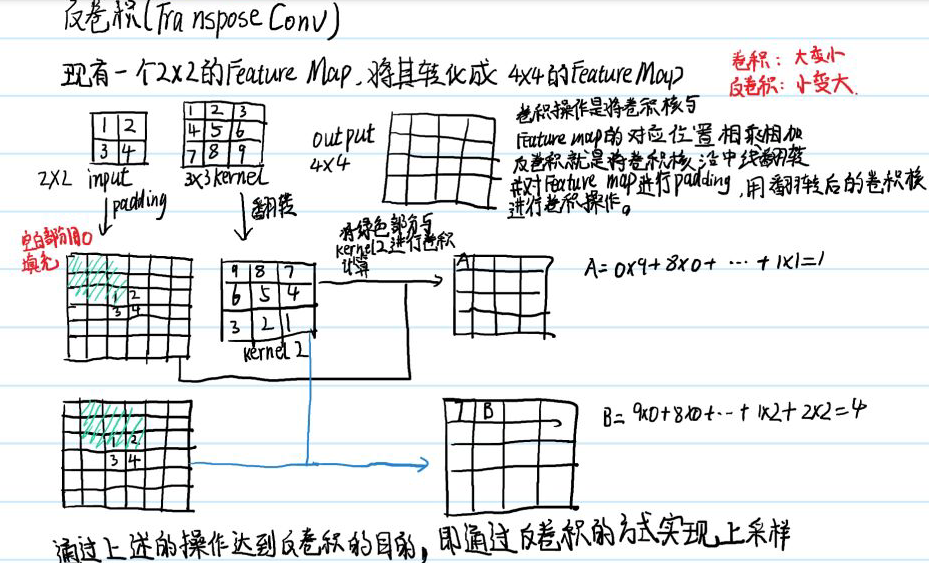 反卷积(Transpose Conv)
现有一个2x2的Feature Map,将其转化成 4x4的Feature Map
卷积:大变小
反卷积:小变大.
1 2
3 4
2x2 input
1 2 3
4 5 6
7 8 9
3x3 kernel
output
4x4
卷积操作是将卷积核与
Feature map的对应位置相乘相加
反卷积就是将卷积核沿中线翻转
并对Feature map进行padding,用翻转后的卷积核
进行卷积操作。
padding
翻转
空白部分用0
填充
1 2
3 4
9 8 7
6 5 4
3 2 1
kernel 2
将绿色部分与
kernel2进行卷积
计算
A
A=0x9+8x0+ … + 1x1=1
1 2
3 4
1 B
B= 9x0+8x0+…+ 1x2+2x2=4
通过上述的操作达到反卷积的目的,即通过反卷积的方式实现上采样